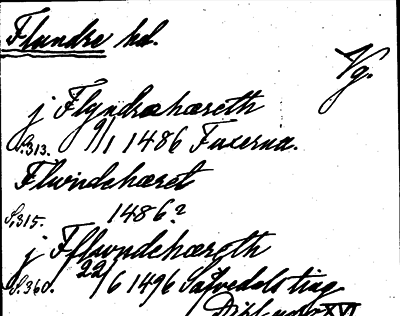 Flundre hd.
Vg.
j Flyndrahæreth
S.313. 9/1 1486 Fuxerna.
Flwndehæret
S.315. 1486?
j Fflwndehæreth
S.360. 22/6 1496 Säfvedals ting
Dipl. XVI